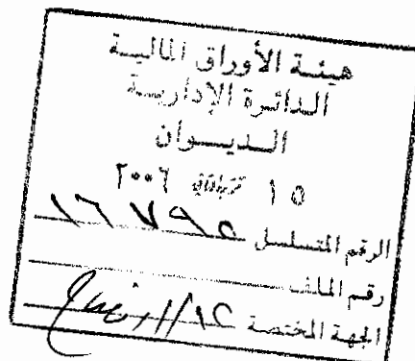 هيئة الأوراق المالية
الدائرة الإدارية
الديوان
١٥ تشرين الثاني ٢٠٠٦
الرقم المتسلسل ١٦٧٩٤
رقم الملف
الجهة المختصة